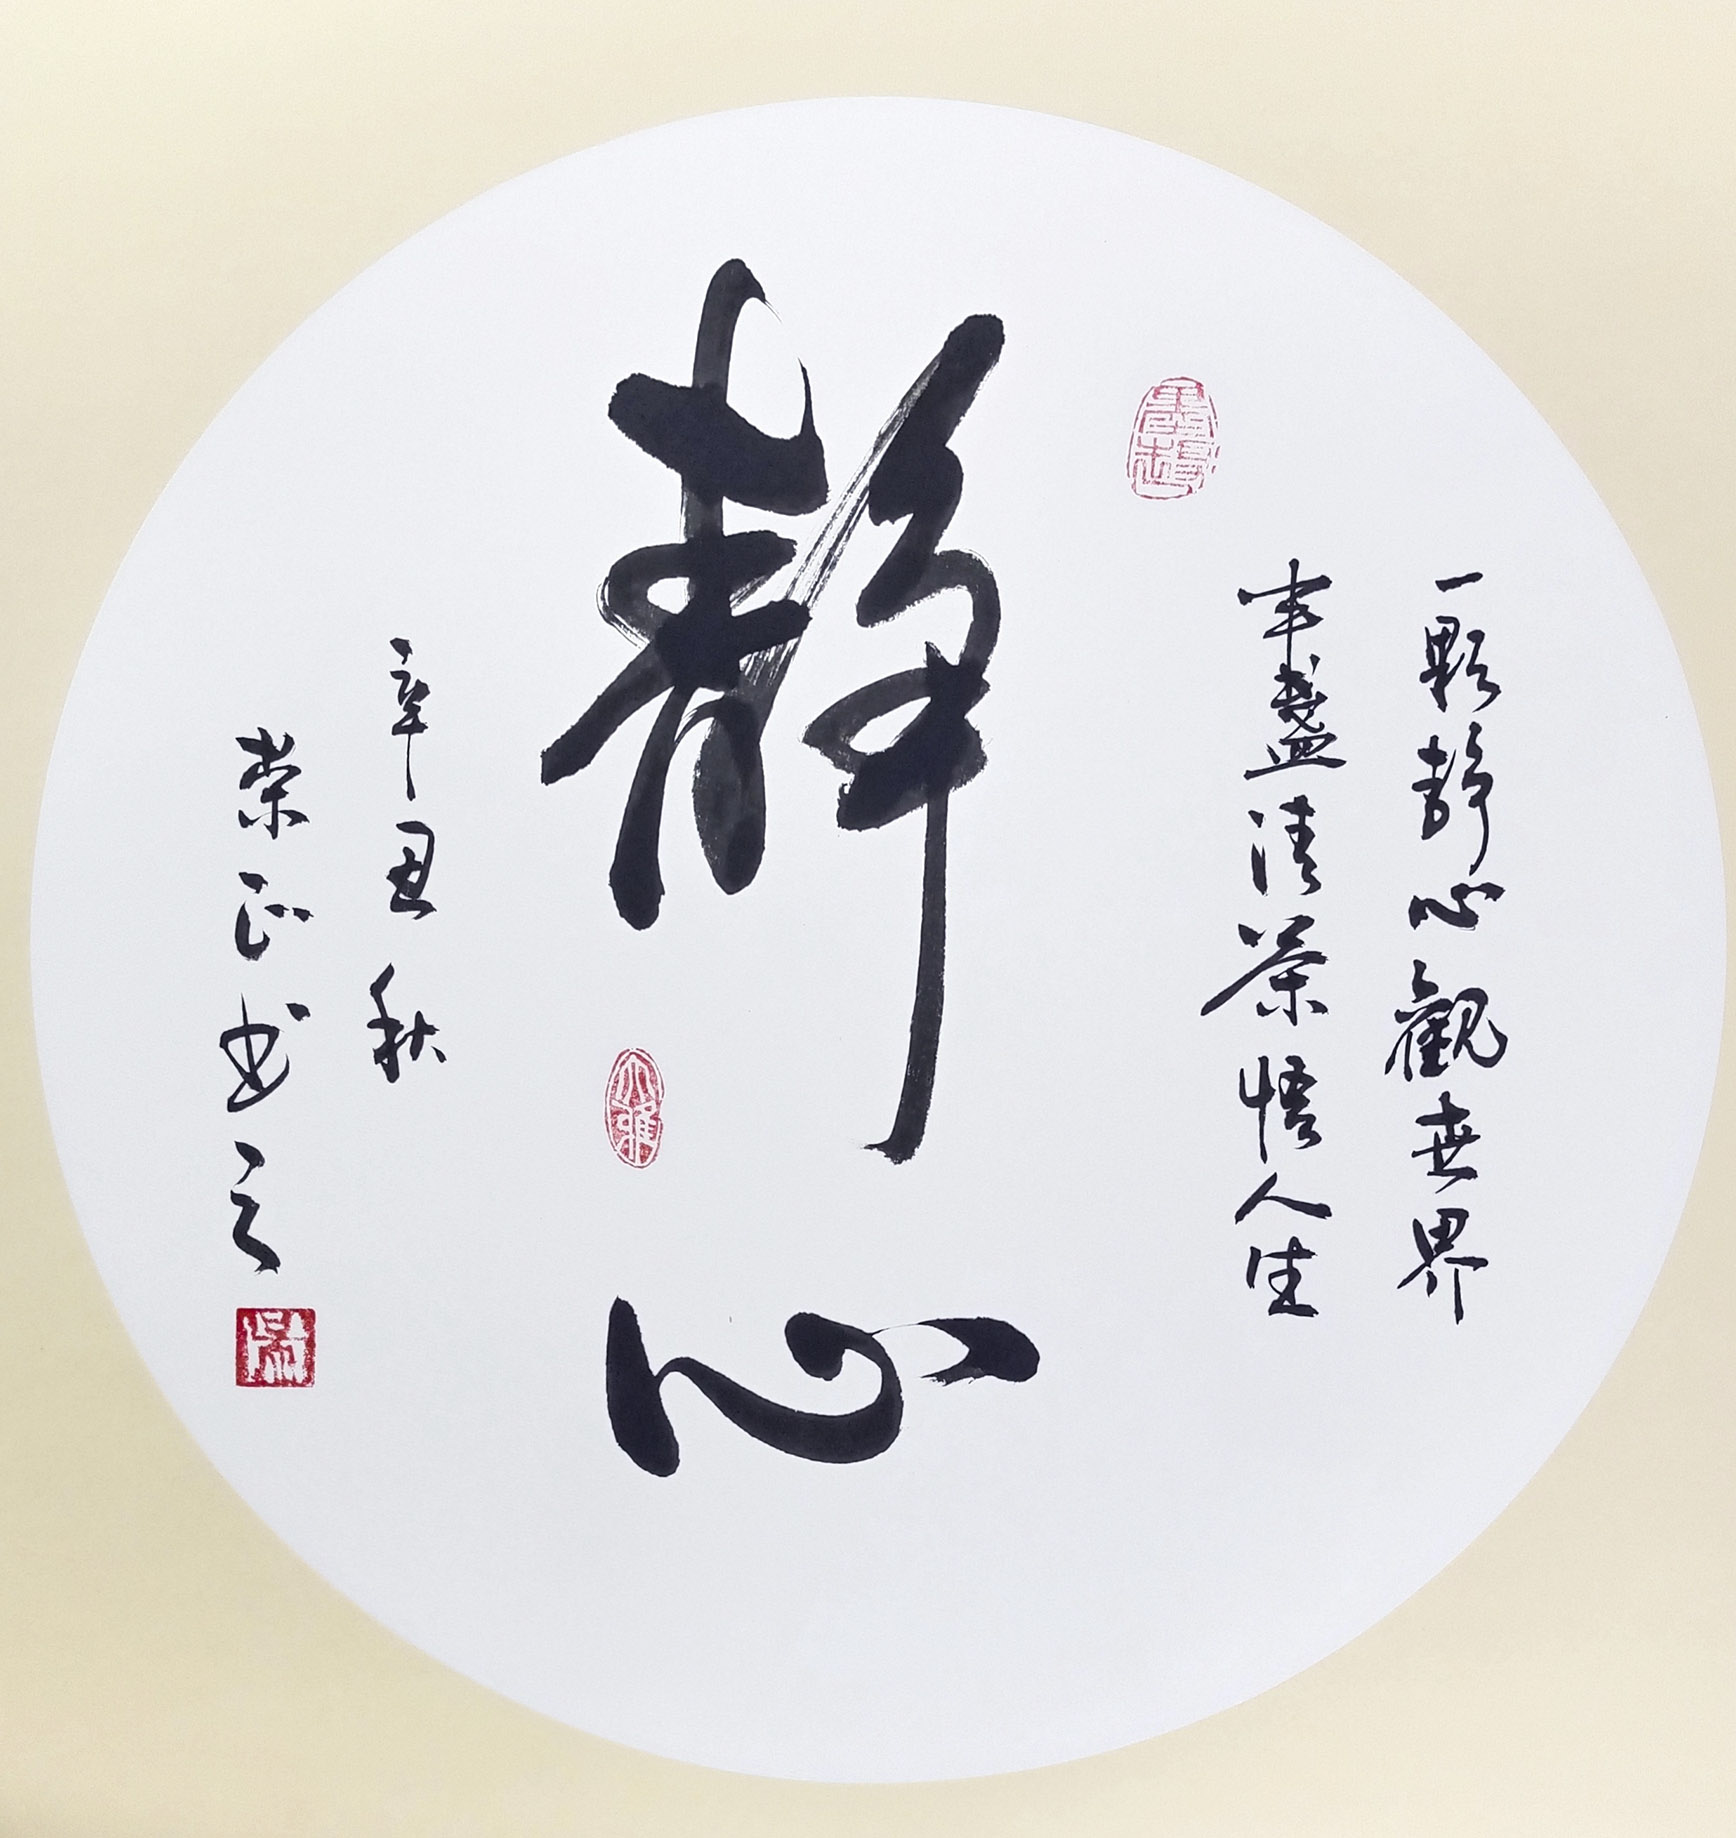 一顆静心觀世界
半盞清茶悟人生
静心
辛丑秋
荣正书之
大雅